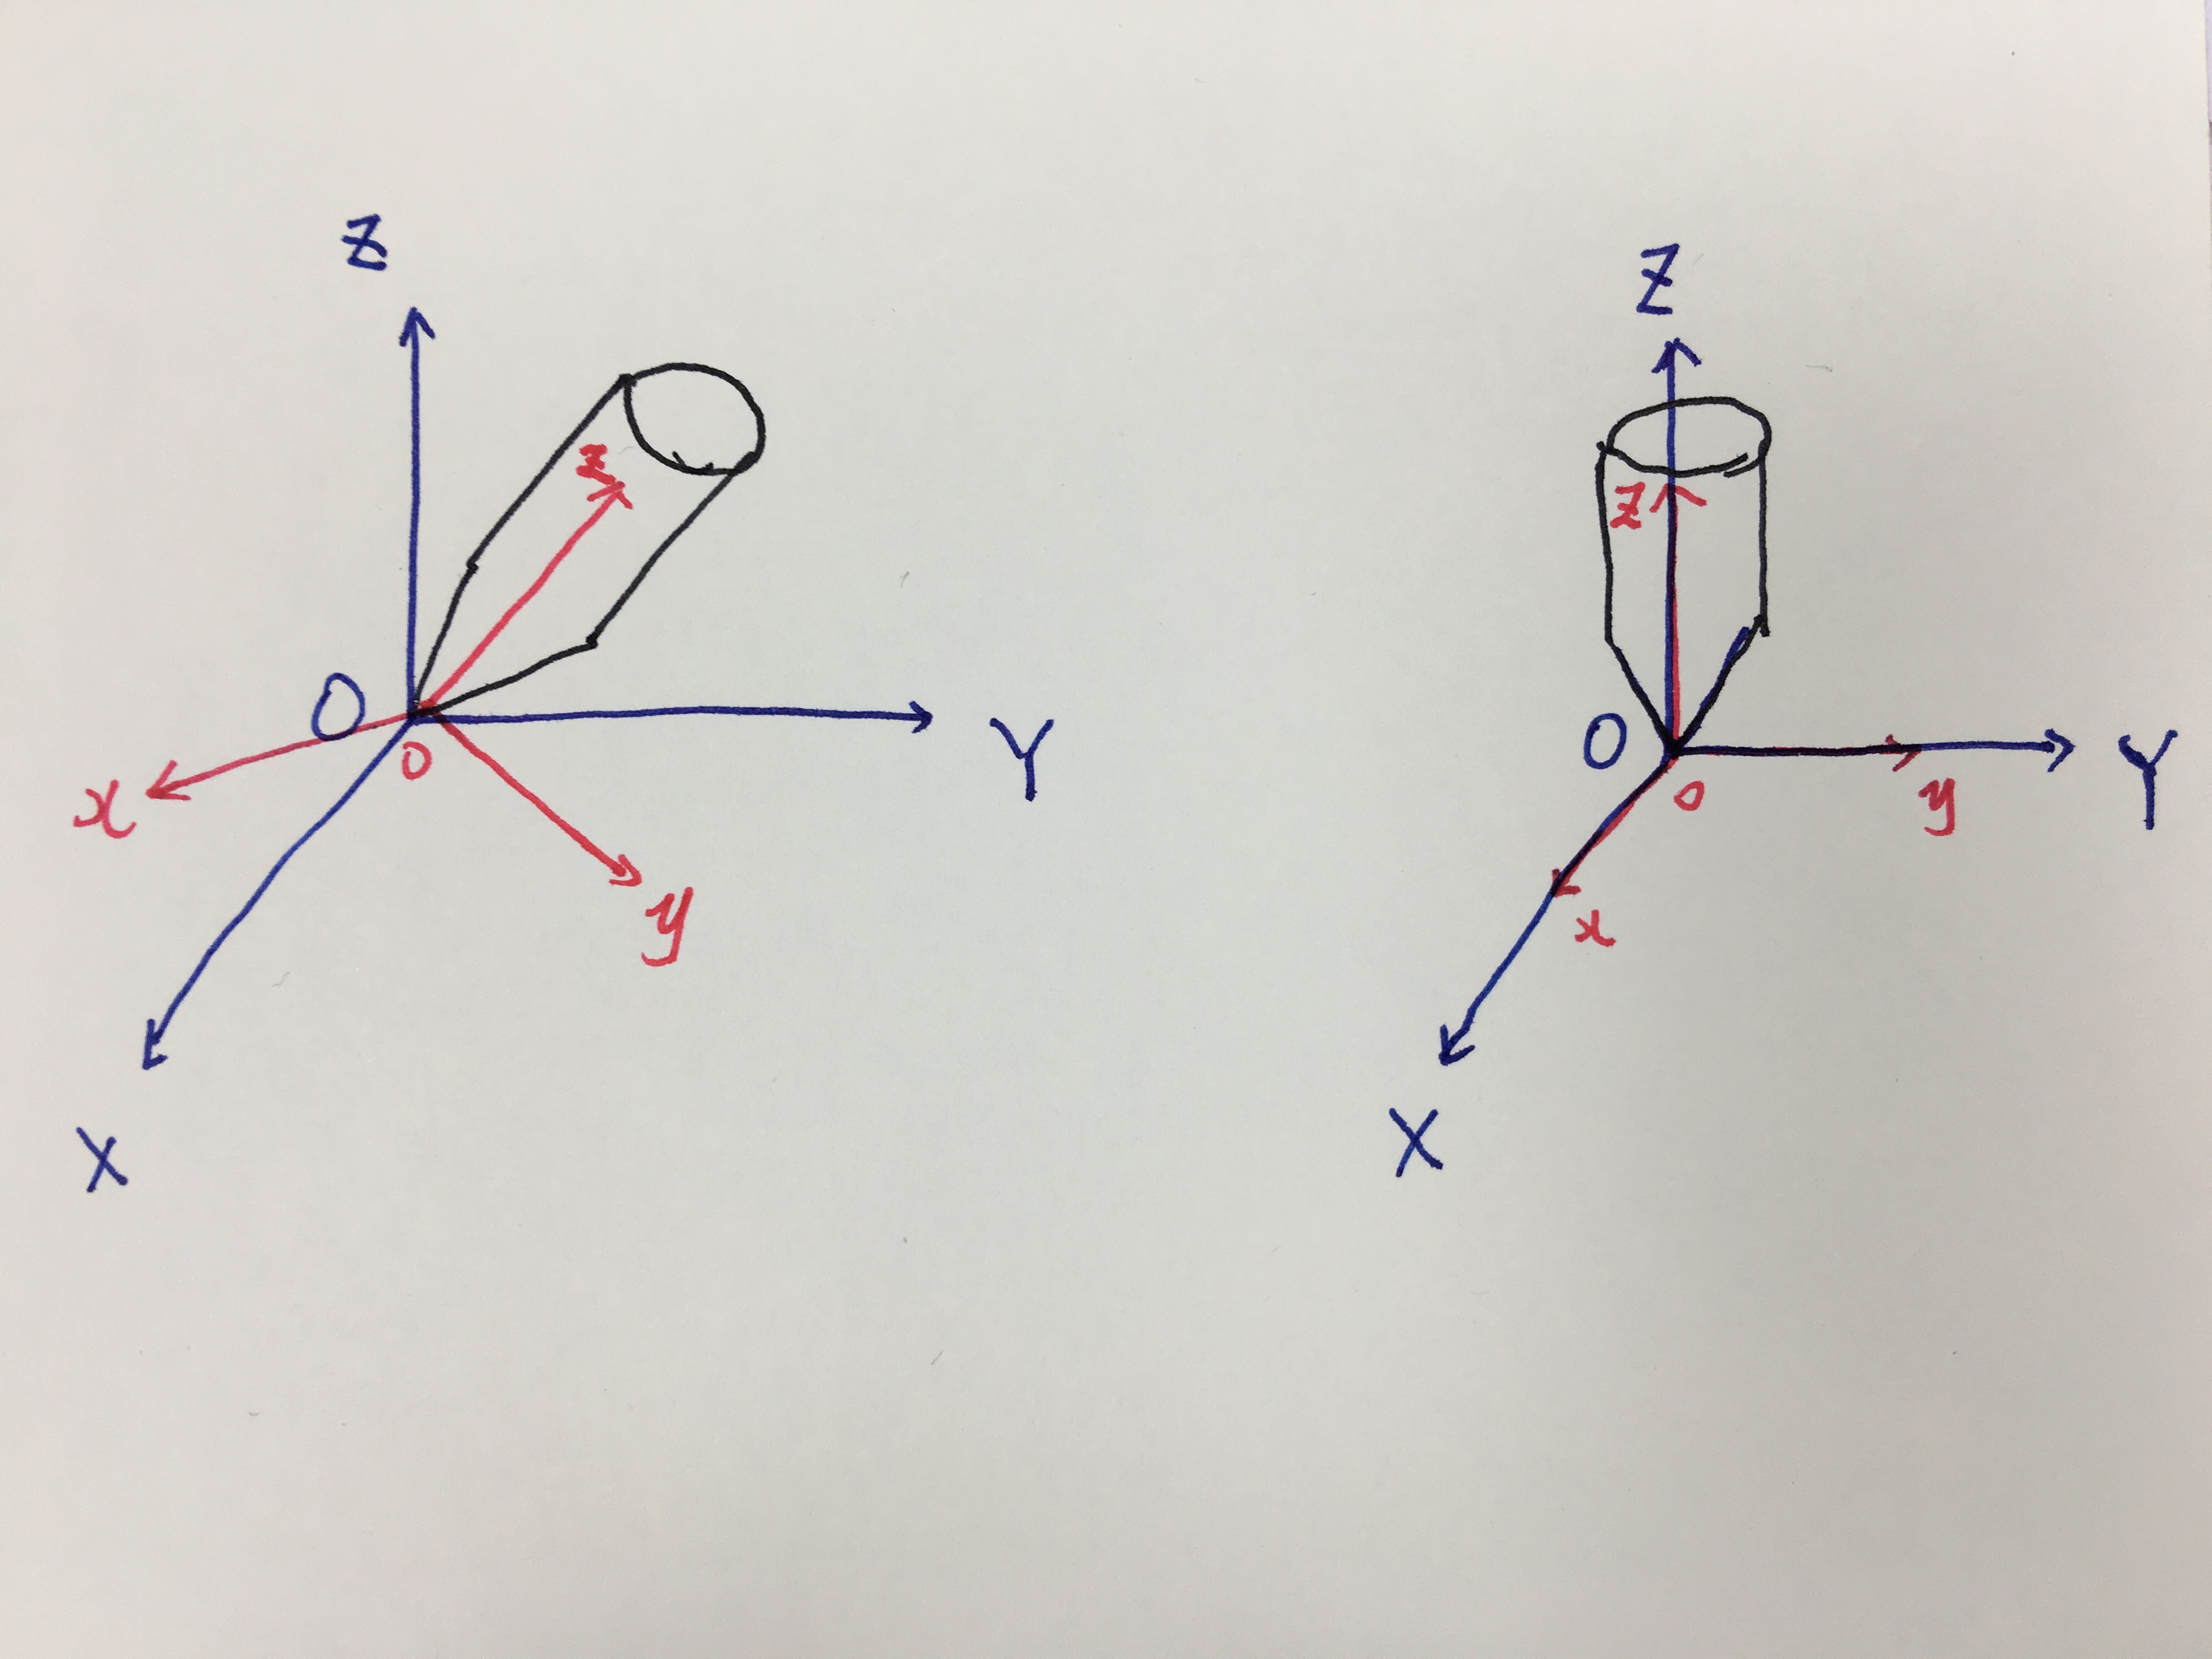 Z
z
O
o
x
Y
y
X
Z
z
O
o
Y
y
x
X